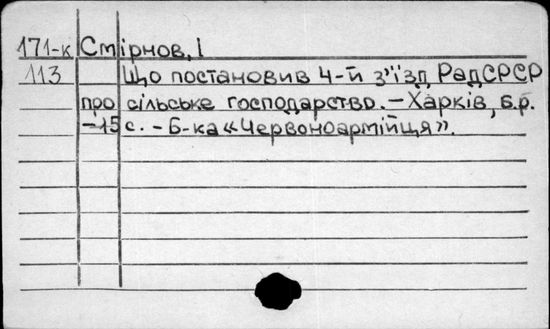 171-к Смірнов, І
113 Що постановив 4-й з'їзд РадСРСР
про сільське господарство. – Харків, б.р.
– 15 с. – Б-ка «Червоноармійця».